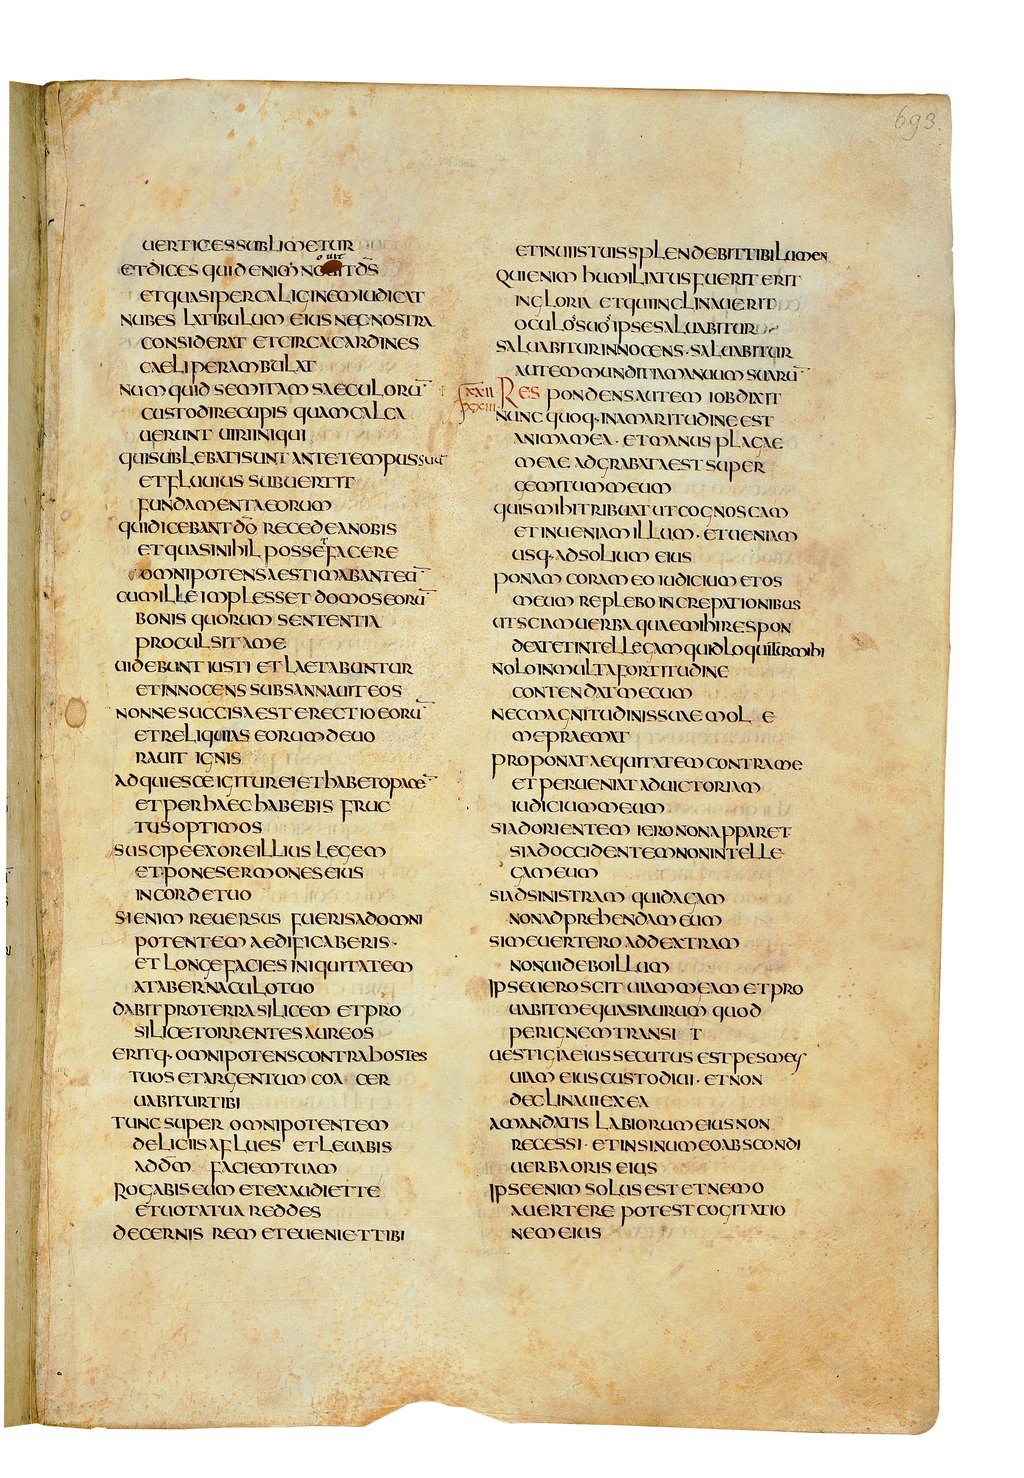 693.
UERTICES SUBLIMETUR
ouit
ET DICES QUID ENIM NO IT D̄S
ET QUASI PER CALIGINEM IUDICAT
NUBES LATIBULUM EIUS NEC NOSTRA
CONSIDERAT ET CIRCA CARDINES
CAELI PERAMBULAT
NUMQUID SEMITAM SAECULORU̅
CUSTODIRE CUPIS QUAM CALCA
UERUNT UIRI INIQUI
QUI SUBLEBATI SUNT ANTE TEMPUS SUU̅
ET FLUUIUS SUBUERTIT
FUNDAMENTA EORUM
QUI DICEBANT D̄O RECEDE A NOBIS
ET QUASI NIHIL POSSET FACERE
OMNIPOTENS AESTIMABANT EU̅
CUM ILLE IMPLESSET DOMOS EORU̅
BONIS QUORUM SENTENTIA
PROCUL SIT A ME
UIDEBUNT IUSTI ET LAETABUNTUR
ET INNOCENS SUBSANNAUIT EOS
NONNE SUCCISA EST ERECTIO EORU̅
ET RELIQUIAS EORUM DEUO
RAUIT IGNIS
ADQUIESCE IGITUR EI ET HABETO PACE̅
ET PER HAEC HABEBIS FRUC
TUS OPTIMOS
SUSCIPE EX ORE ILLIUS LEGEM
ET PONE SERMONES EIUS
IN CORDE TUO
SI ENIM REUERSUS FUERIS AD OMNI
POTENTEM AEDIFICABERIS·
ET LONGE FACIES INIQUITATEM
A TABERNACULO TUO
DABIT PRO TERRA SILICEM ET PRO
SILICE TORRENTES AUREOS
ERITQ· OMNIPOTENS CONTRA HOSTES
TUOS ET ARGENTUM COA CER
UABITUR TIBI
TUNC SUPER OMNIPOTENTEM
DELICIIS AFLUES ET LEUABIS
AD D̄M FACIEM TUAM
ROGABIS EUM ET EXAUDIET TE
ET UOTA TUA REDDES
DECERNIS REM ET EUENIET TIBI
ET IN UIIS TUIS SPLENDEBIT TIBI LUMEN
QUI ENIM HUMILIATUS FUERIT ERIT
IN GLORIA ET QUI INCLINAUERIT
OCULOS SUOS IPSE SALUABITUR
SALUABITUR INNOCENS· SALUABITUR
AUTEM MUNDITIA MANUUM SUARU̅
XXII RESPONDENS AUTEM IOB DIXIT
XXIII NUNC QUOQ· IN AMARITUDINE EST
ANIMA MEA· ET MANUS PLAGAE
MEAE ADGRABATA EST SUPER
GEMITUM MEUM
QUIS MIHI TRIBUAT UT COGNOSCAM
ET INUENIAM ILLUM· ET UENIAM
USQ· AD SOLIUM EIUS
PONAM CORAM EO IUDICIUM ET OS
MEUM REPLEBO INCREPATIONIBUS
UT SCIAM UERBA QUAE MIHI RESPON
DEAT ET INTELLEGAM QUID LOQUITUR MIHI
NOLO IN MULTA FORTITUDINE
CONTENDAT MECUM
NEC MAGNITUDINIS SUAE MOL E
ME PRAEMAT
PROPONAT AEQUITATEM CONTRA ME
ET PERUENIAT AD UICTORIAM
IUDICIUM MEUM
SI AD ORIENTEM IERO NON APPARET
SI AD OCCIDENTEM NON INTELLE
GAM EUM
SI AD SINISTRAM QUID AGAM
NON ADPREHENDAM EUM
SI ME UERTERO AD DEXTRAM
NON UIDEBO ILLUM
IPSE UERO SCIT UIAM MEAM ET PRO
UABIT ME QUASI AURUM QUOD
PER IGNEM TRANSI T
UESTIGIA EIUS SECUTUS EST PES MEUS
UIAM EIUS CUSTODIUI· ET NON
DECLINAUI EX EA
A MANDATIS LABIORUM EIUS NON
RECESSI· ET IN SINU MEO ABSCONDI
UERBA ORIS EIUS
IPSE ENIM SOLUS EST ET NEMO
AUERTERE POTEST COGITATIO
NEM EIUS